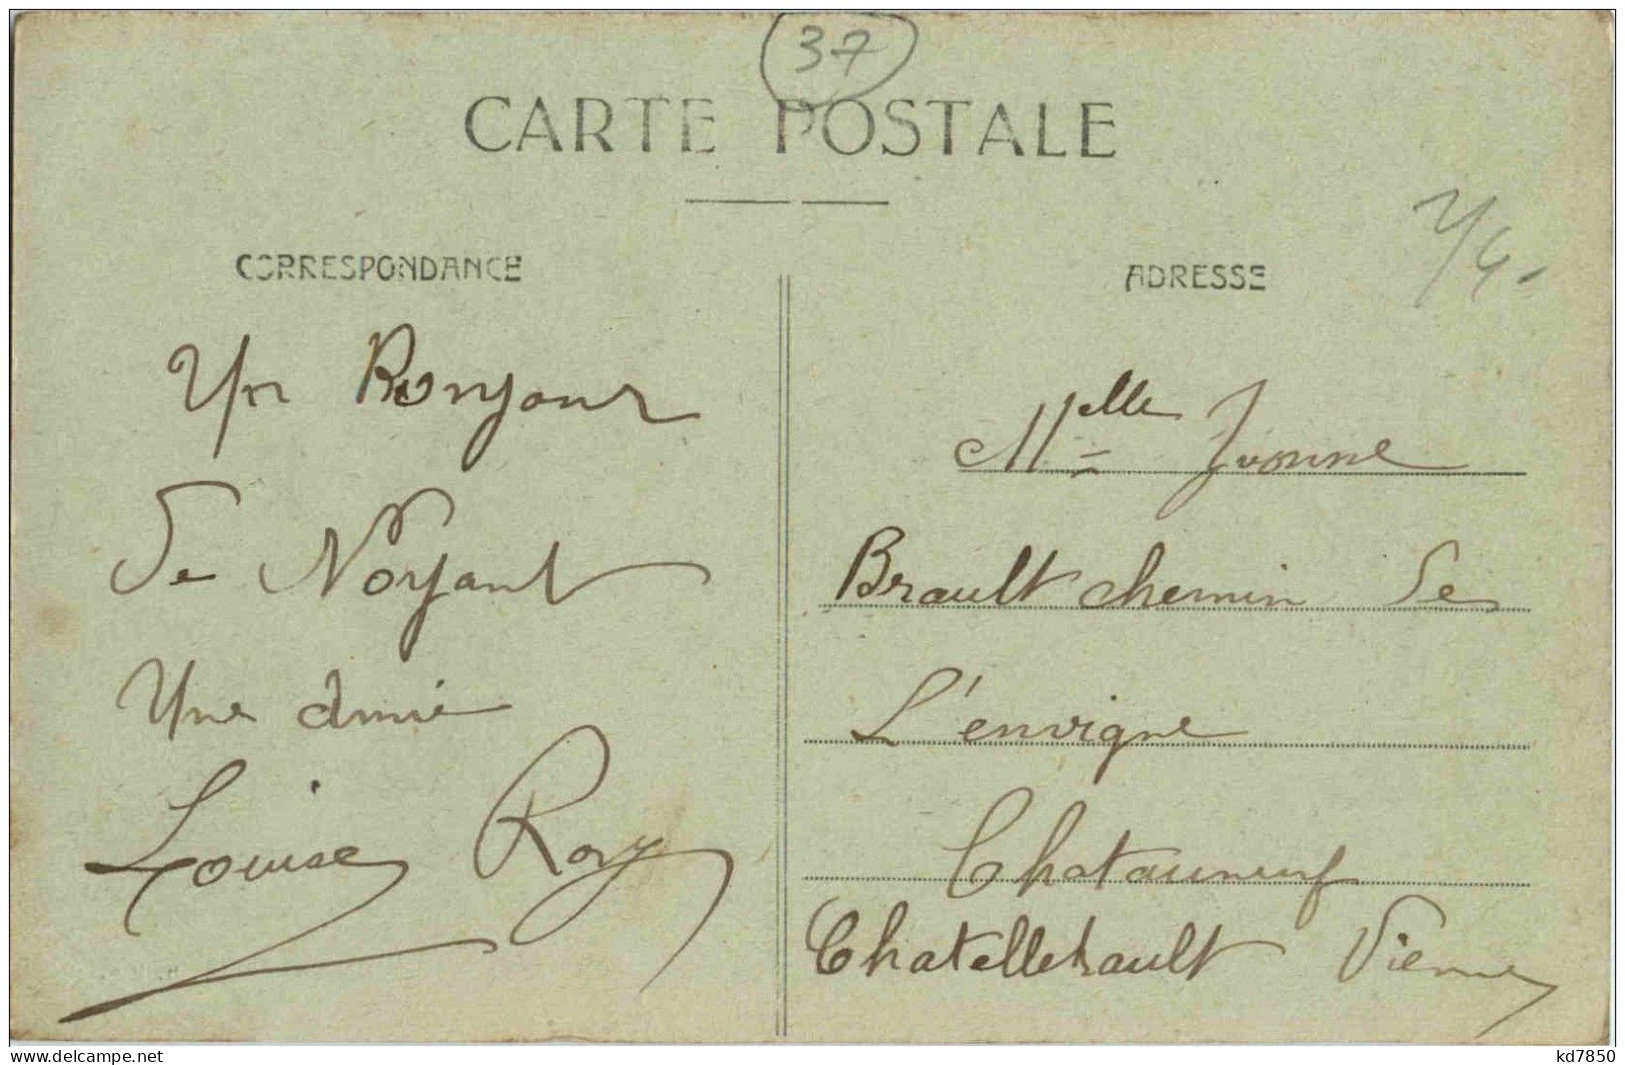 37
CARTE POSTALE
CORRESPONDANCE
Un Bonjour
de Noyant
Une amie
Louise Roy
ADRESSE
Melle Yvonne
Brault chemin de
L'envigne
Chatauneuf
Chatellerault Vienne
delcampe.net
kd7850